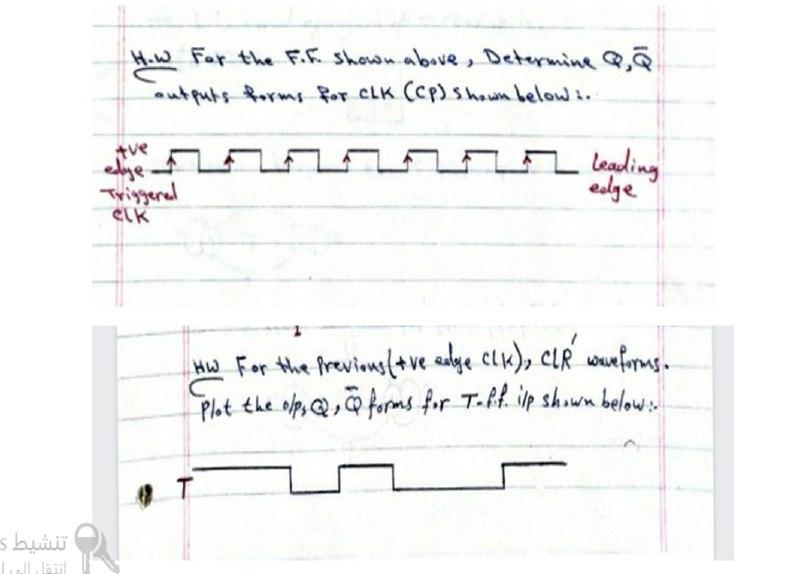 H.W For the F.F. shown above, Determine Q, Q̄
outputs forms for CLK (CP) shown below:.
+ve
edge
Triggered
CLK
Leading
edge
HW For the Previous (+ve edge CLK), CLR' waveforms.
Plot the o/ps Q, Q̄ forms for T-f.f. i/p shown below:-
T
تنشيط s
انتقل إلى